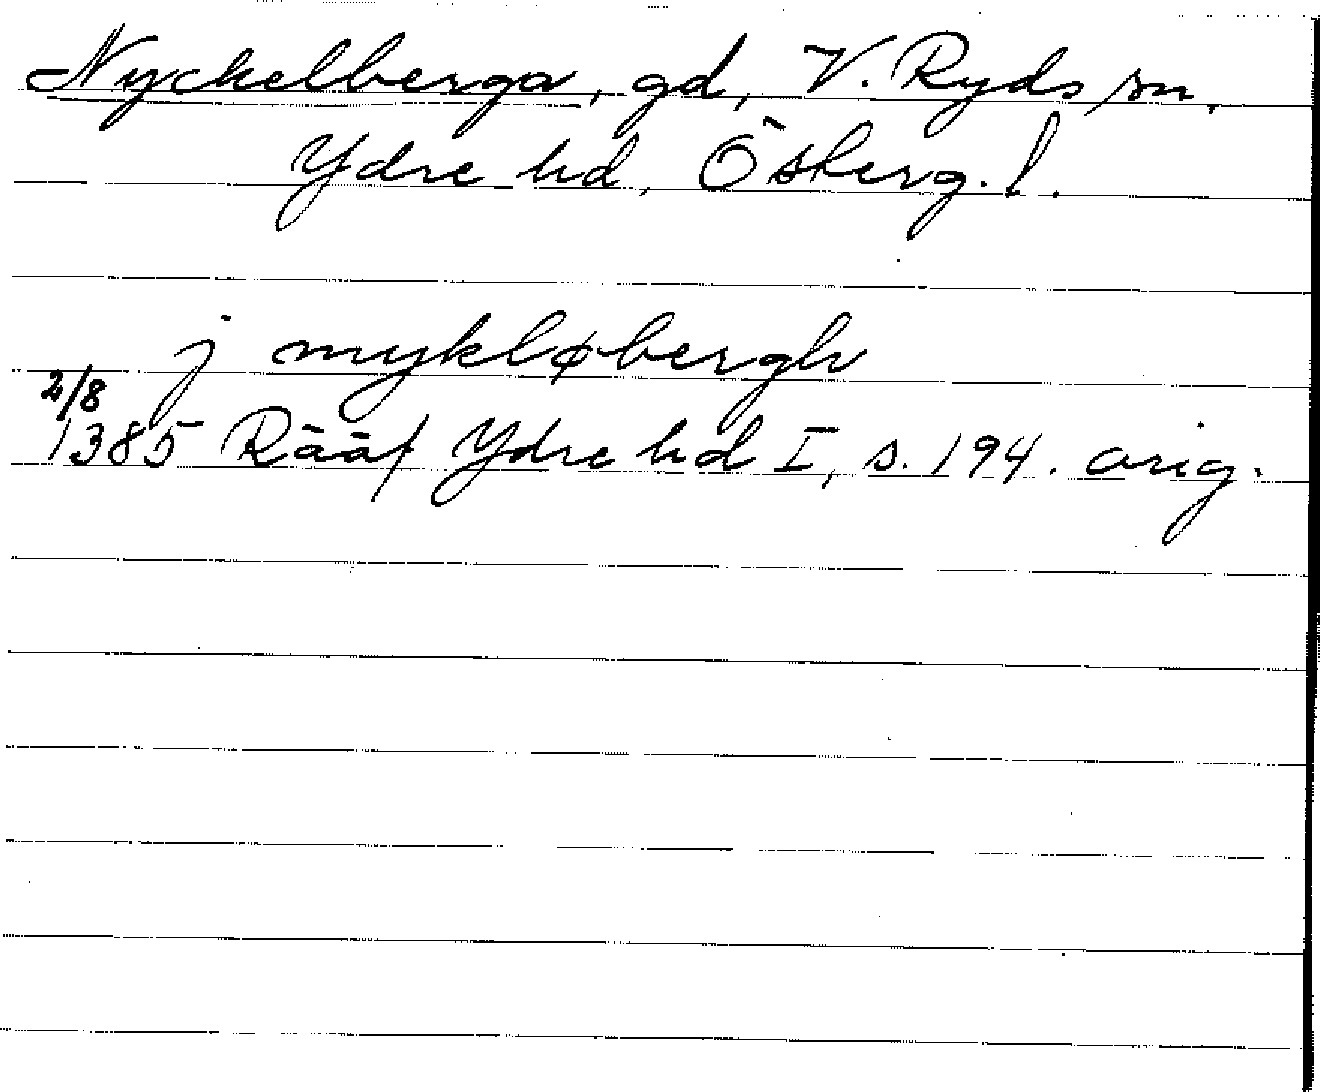 Nyckelberga, gd, V. Ryds sn,
Ydre hd, Österg. l.
j mykløbergh
2/8
1385 Rääf Ydre hd I, s. 194. orig.